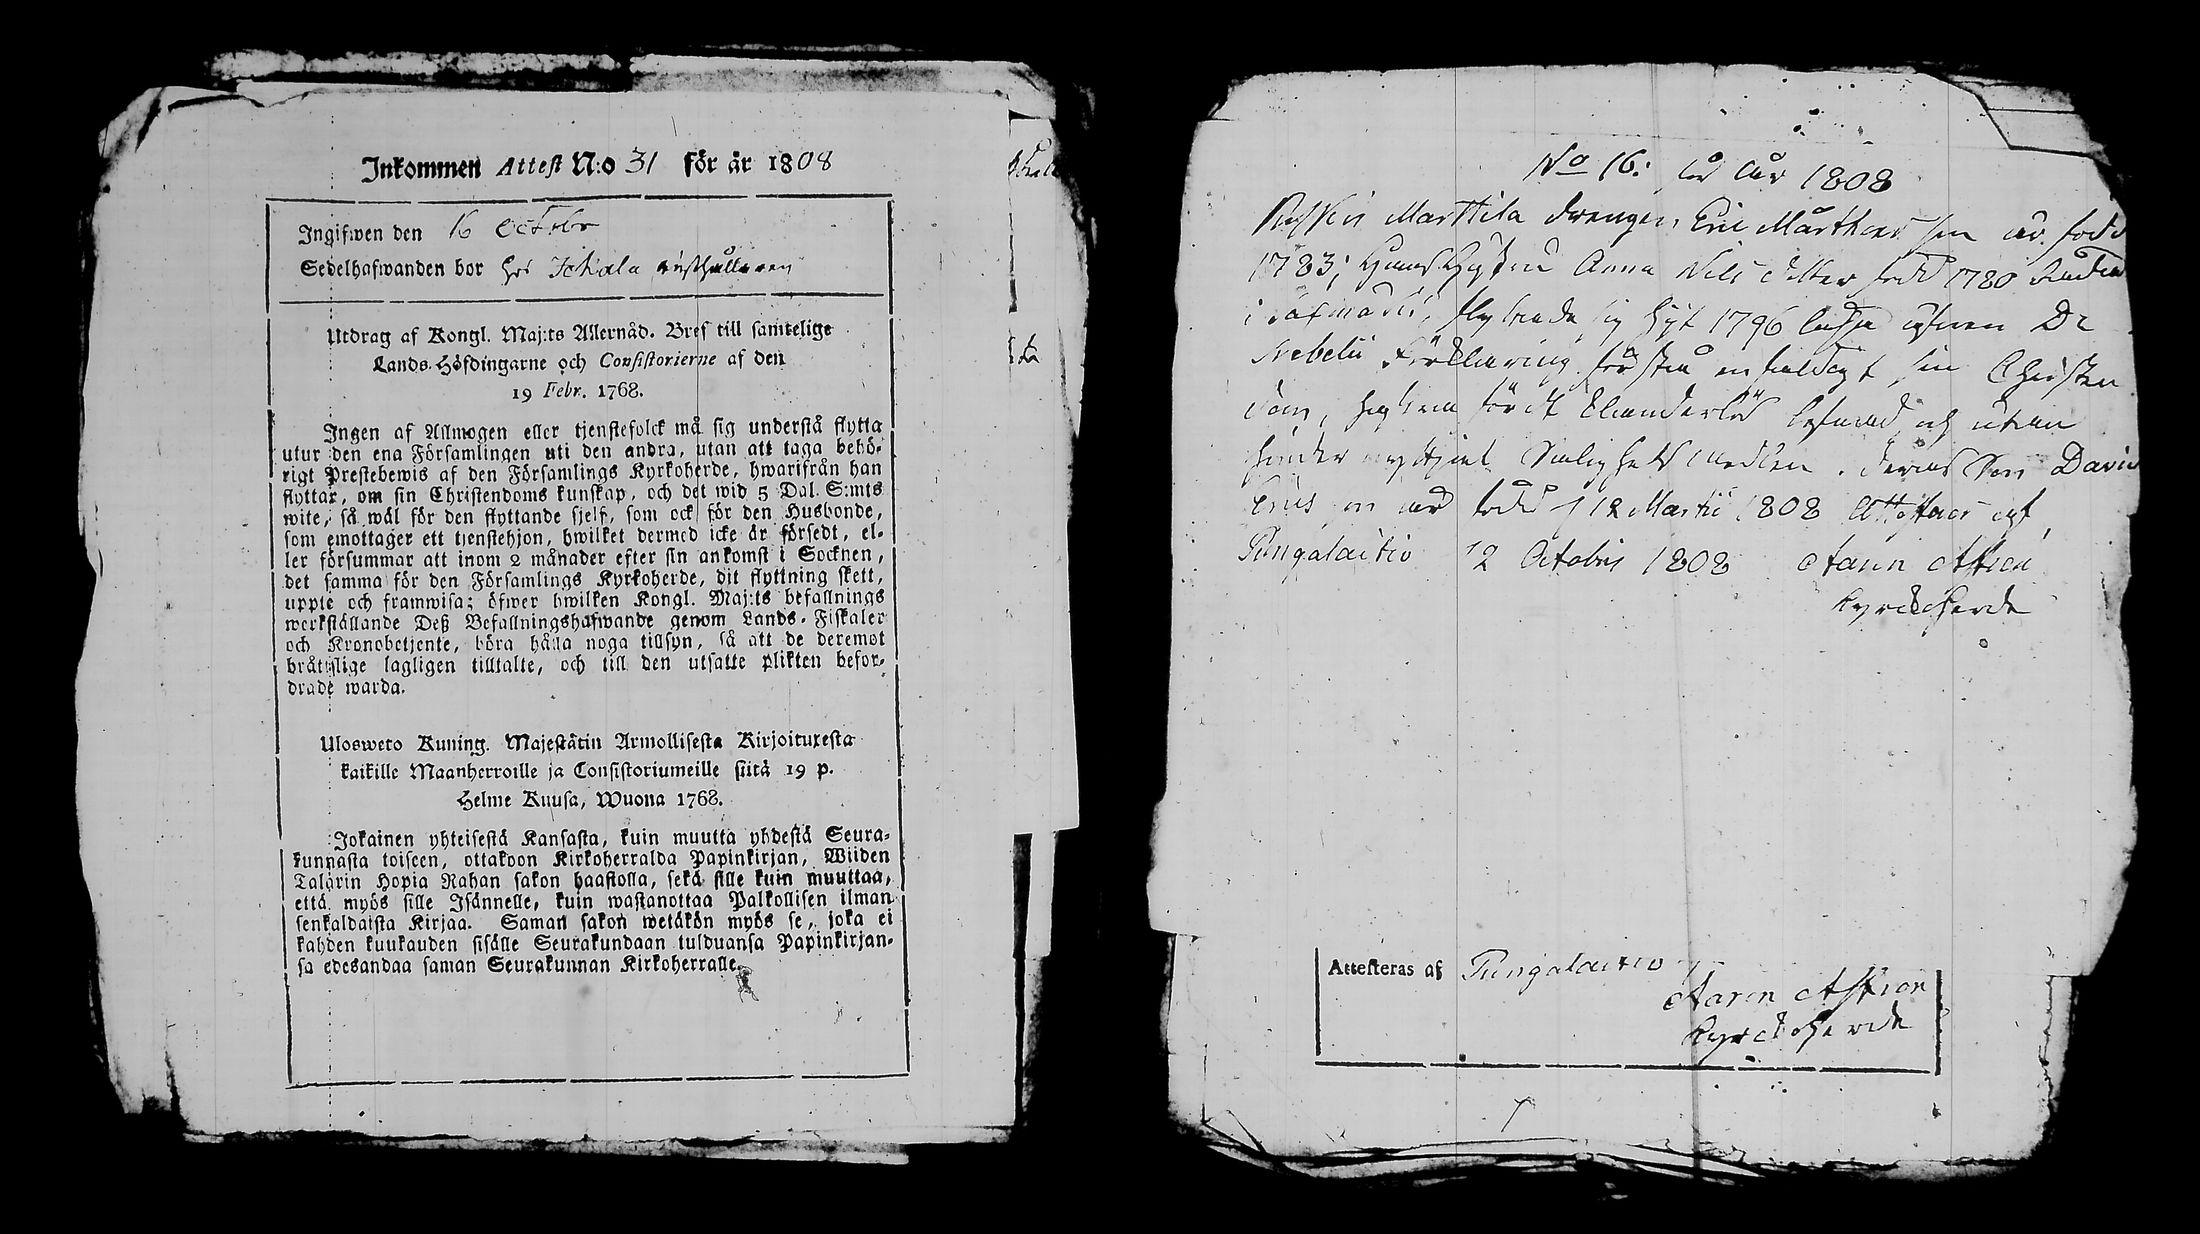 Inkommen Attest N:o 31 för år 1808
Ingifwen den 16 Octobr
Sedelhafwanden bor hos Ichala rusthållaren
Utdrag af Kongl. Maj:ts Allernåd. Bref till samtelige
Lands-Höfdingarne och Consistorierne af den
19 Febr. 1768.
Ingen af Allmogen eller tjenstefolck må sig understå flytta
utur den ena Församlingen uti den andra, utan att taga behö-
rigt Prestebewis af den Församlings Kyrkoherde, hwarifrån han
flyttar, om sin Christendoms kunskap, och det wid 5 Dal. S:mts
wite, så wäl för den flyttande sjelf, som ock för den Husbonde,
som emottager ett tjenstehjon, hwilket dermed icke är försedt, el-
ler försummar att inom 2 månader efter sin ankomst i Socknen,
det samma för den Församlings Kyrkoherde, dit flyttning skett,
uppte och framwisa; öfwer hwilken Kongl. Maj:ts befallnings
werkställande Deß Befallningshafwande genom Lands-Fiskaler
och Kronobetjente, böra hålla noga tillsyn, så att de deremot
bråttslige lagligen tilltalte, och till den utsatte plikten befor-
drade warda.
Ulosweto Kuning. Majestätin Armollisesta Kirjoituxesta
kaikille Maanherroille ja Consistoriumeille siitä 19 p.
Helme Kuusa, Wuona 1768.
Jokainen yhteisestä Kansasta, kuin muutta yhdestä Seura-
kunnasta toiseen, ottakoon Kirkoherralda Papinkirjan, Wiiden
Talarin Hopia Rahan sakon haastolla, sekä sille kuin muuttaa,
että myös sille Isännelle, kuin wastanottaa Palkollisen ilman
senkaldaista Kirjaa. Saman sakon wetäkön myös se, joka ei
kahden kuukauden sisälle Seurakundaan tulduansa Papinkirjan-
sa edesandaa saman Seurakunnan Kirkoherralle.
No 16: för år 1808
Marttila drengen Eric Matthias son är född
1783; Hustru Anna Nils dotter född 1780
i flyttade sig hit 1796 läsa äfven Dr
Svebelii Förklaring, förstå enfaldigt sin Christen
dom, hafva fördt oklanderlig lefnad och utan
hinder nyttjat Salighets medlen. deras Son David
Ericsson är född d 12 Martii 1808 Attesteras af
Pungalaitio 12 Octobris 1808 Aaron Astren
Kyrckoherde
Attesteras af Pungalaitio
Aaron Astren
Kyrckoherde